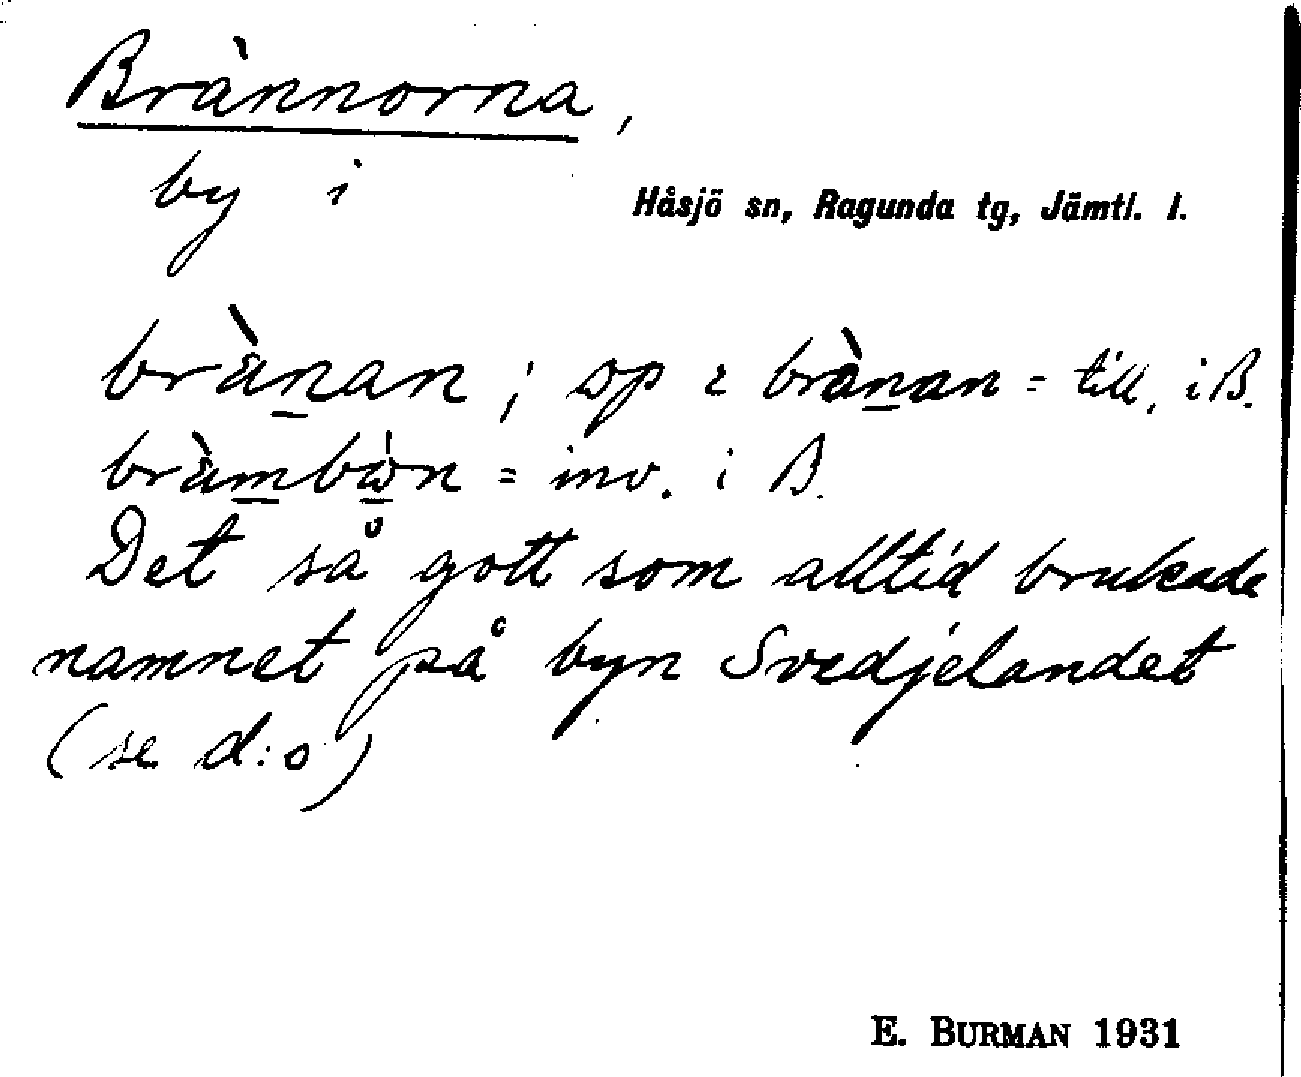 Brännorna,
by i Håsjö sn, Ragunda tg, Jämtl. l.
brànan; op i brànan = till, i B.
bràmbòn = inv. i B.
Det så gott som alltid brukade
namnet på byn Svedjelandet
(se d:o)
E. BURMAN 1931